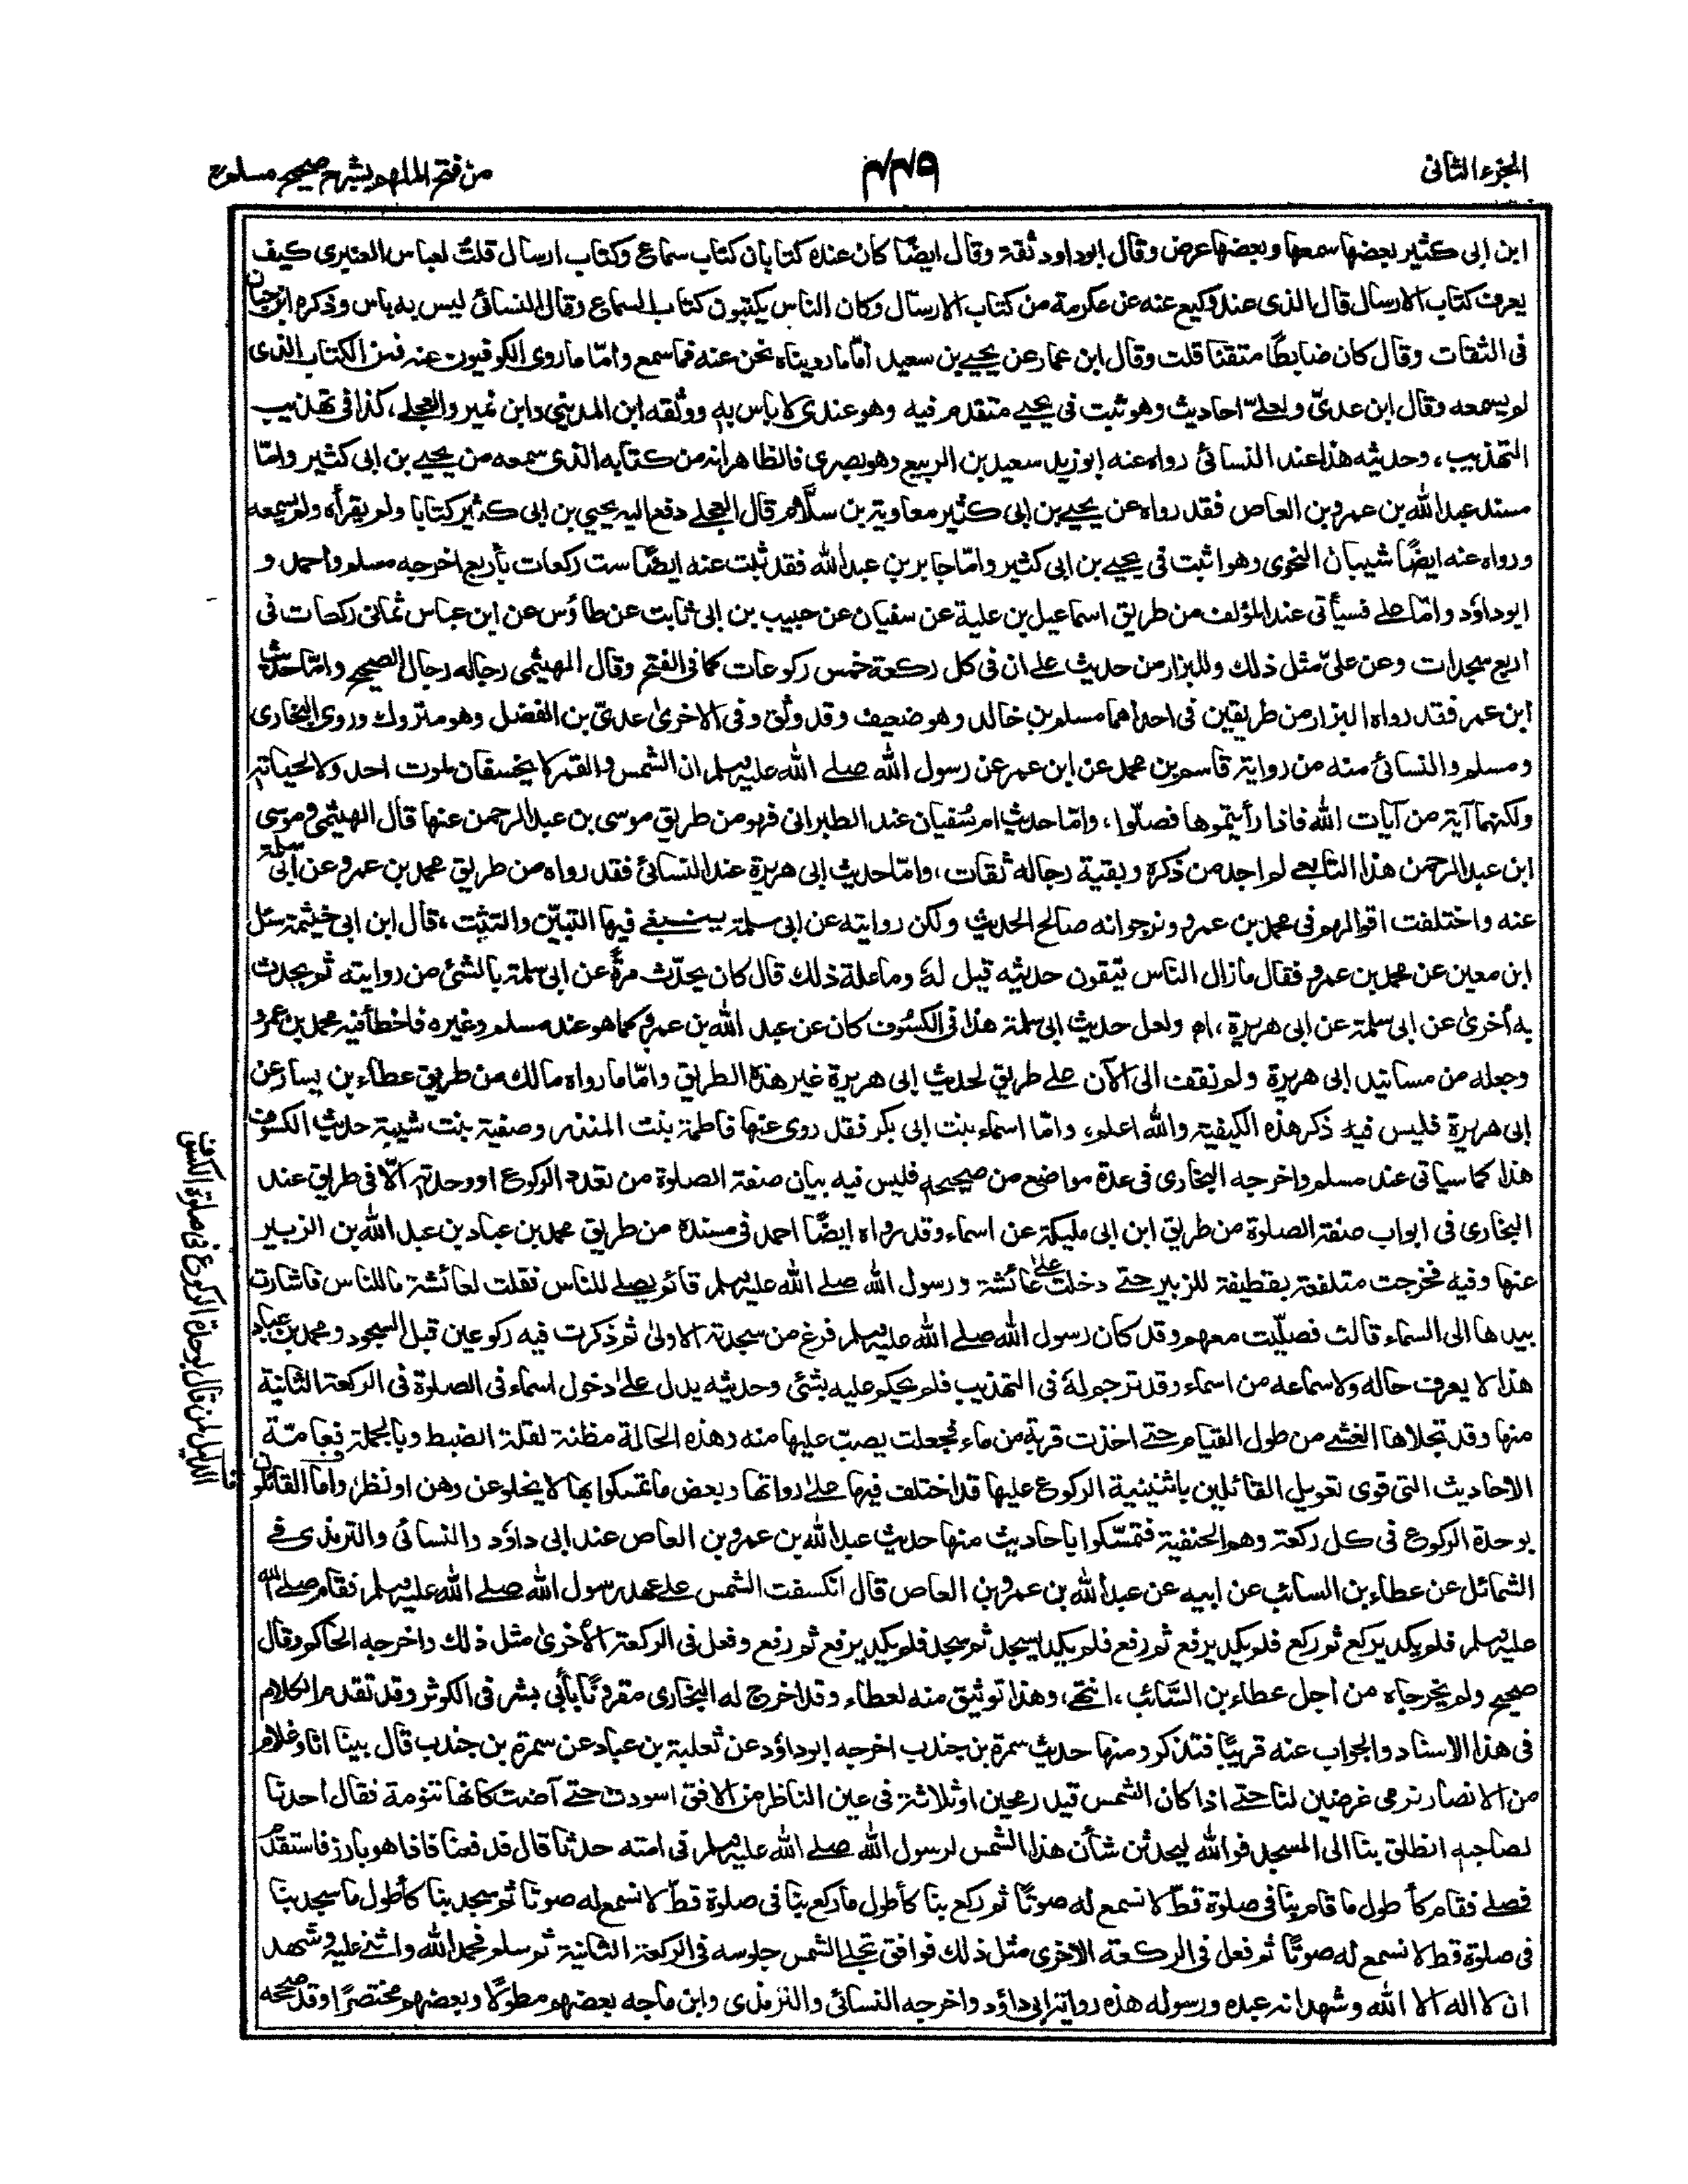 الجزء الثانى
٤٤٩
من فتح الملهم بشرح صحيح مسلم
ابن ابى كثير بعضها سمعها وبعضها عرض وقال ابوداود ثقة وقال ايضًا كان عنده كتابان كتاب سماع وكتاب ارسال قلتُ لعباس العنبرى كيف
يعرف كتاب الارسال قال الذى عند وكيع عنه عن عكرمة من كتاب الارسال وكان الناس يكتبون كتاب السماع وقال النسائى ليس به باس وذكره ابن حبان
فى الثقات وقال كان ضابطًا متقنا قلت وقال ابن عمار عن يحيى بن سعيد أمّا ما رويناه نحن عنه فما سمع وامّا ما روى الكوفيون عنه فمن الكتاب الذى
لم يسمعه وقال ابن عدىّ ولعلىّ احاديث وهو ثبت فى يحيى متقدم فيه وهو عندى لا باس به ووثقه ابن المدينى وابن نمير والعجلى، كذا فى تهذيب
التهذيب، وحديثه هذا عند النسائى رواه عنه ابو زيد سعيد بن الربيع وهو بصرى فالظاهر انه من كتابه الذى سمعه من يحيى بن ابى كثير وامّا
مسند عبد الله بن عمرو بن العاص فقد رواه عن يحيى بن ابى كثير معاوية بن سلّام قال العجلى دفع اليه يحيى بن ابى كثير كتابا ولم يقرأه ولم يسمعه
ورواه عنه ايضًا شيبان النحوى وهو اثبت فى يحيى بن ابى كثير وامّا جابر بن عبد الله فقد ثبت عنه ايضًا ست ركعات بأربع اخرجه مسلم واحمد و
ابوداؤد وامّا على فسيأتى عند المؤلف من طريق اسماعيل بن علية عن سفيان عن حبيب بن ابى ثابت عن طاؤس عن ابن عباس ثمانى ركعات فى
اربع سجدات وعن علىّ مثل ذلك وللبزار من حديث على ان فى كل ركعة خمس ركوعات كما فى الفتح وقال الهيثمى رجاله رجال الصحيح وامّا حديث
ابن عمر فقد رواه البزار من طريقين فى احداهما مسلم بن خالد وهو ضعيف وقد وثق وفى الاخرىٰ عدىّ بن الفضل وهو متروك وروى البخارى
ومسلم والنسائى منه من رواية قاسم بن محمد عن ابن عمر عن رسول الله صلى الله عليه وسلم ان الشمس والقمر لا يخسفان لموت احد ولا لحياته
ولكنهما آية من آيات الله فاذا رأيتموها فصلّوا، وامّا حديث ام سُفيان عند الطبرانى فهو من طريق موسى بن عبد الرحمن عنها قال الهيثمى وموسى
ابن عبد الرحمن هذا التابعى لم اجد من ذكره وبقية رجاله ثقات، وامّا حديث ابى هريرة عند النسائى فقد رواه من طريق محمد بن عمرو عن ابى سلمة
عنه واختلفت اقوالهم فى محمد بن عمرو ونرجو انه صالح الحديث ولكن روايته عن ابى سلمة ينبغى فيها التبيّن والتثبت، قال ابن ابى خيثمة سئل
ابن معين عن محمد بن عمرو فقال مازال الناس يتقون حديثه قيل لهٗ وما علة ذلك قال كان يحدّث مرةً عن ابى سلمة بالشئ من روايته ثم يحدث
به أخرىٰ عن ابى سلمة عن ابى هريرة، اھ ولعل حديث ابى سلمة هذا فى الكسُوف كان عن عبد الله بن عمرو كما هو عند مسلم وغيره فاخطأ فيه محمد بن عمرو
وجعله من مسانيد ابى هريرة ولم نقف الى الآن على طريق لحديث ابى هريرة غير هذه الطريق وامّا ما رواه مالك من طريق عطاء بن يسار عن
ابى هريرة فليس فيه ذكر هذه الكيفية والله اعلم، وامّا اسماء بنت ابى بكر فقد روى عنها فاطمة بنت المنذر وصفية بنت شيبة حديث الكسوف
هذا كما سياتى عند مسلم واخرجه البخارى فى عدة مواضع من صحيحه فليس فيه بيان صفة الصلوة من تعدد الركوع او وحدته الّا فى طريق عند
البخارى فى ابواب صفة الصلوة من طريق ابن ابى مليكة عن اسماء وقد رواه ايضًا احمد فى مسنده من طريق محمد بن عباد بن عبد الله بن الزبير
عنها وفيه فخرجت متلفعة بقطيفة للزبير حتى دخلت على عائشة ورسول الله صلى الله عليه وسلم قائم يصلى للناس فقلت لعائشة ما للناس فاشارت
بيدها الى السماء قالت فصلّيت معهم وقد كان رسول الله صلى الله عليه وسلم فرغ من سجدته الاولىٰ ثم ذكرت فيه ركوعين قبل السجود ومحمد بن عباد
هذا لا يعرف حاله ولا سماعه من اسماء وقد ترجم لهٗ فى التهذيب فلم يحكم عليه بشئ وحديثه يدل علىٰ دخول اسماء فى الصلوة فى الركعة الثانية
منها وقد تجلاها الغشى من طول القيام حتى اخذت قربة من ماء فجعلت يصبّ عليها منه وهذه الحالة مظنة لقلة الضبط وبالجملة فعامّة
الاحاديث التى قوى تعويل القائلين باثنينية الركوع عليها قد اختلف فيها علىٰ رواتها وبعض ما تمسكوا بها لا يخلو عن وهن او نظر، واما القائلون
بوحدة الركوع فى كل ركعة وهم الحنفية فتمسّكوا باحاديث منها حديث عبد الله بن عمرو بن العاص عند ابى داؤد والنسائى والترمذى فى
الشمائل عن عطاء بن السائب عن ابيه عن عبد الله بن عمرو بن العاص قال انكسفت الشمس على عهد رسول الله صلى الله عليه وسلم فقام صلى الله
عليه وسلم فلم يكد يركع ثم ركع فلم يكد يرفع ثم رفع فلم يكد يسجد ثم سجد فلم يكد يرفع ثم رفع وفعل فى الركعة الأخرىٰ مثل ذلك واخرجه الحاكم وقال
صحيح ولم يخرجاه من اجل عطاء بن السّائب، انتهى، وهذا توثيق منه لعطاء وقد اخرج له البخارى مقرونًا بأبى بشر فى الكوثر وقد تقدم الكلام
فى هذا الاسناد والجواب عنه قريبًا فتذكر ومنها حديث سمرة بن جندب اخرجه ابوداؤد عن ثعلبة بن عباد عن سمرة بن جندب قال بينا انا وغلام
من الانصار نرمى غرضين لنا حتى اذا كان الشمس قيد رمحين او ثلاثة فى عين الناظر من الافق اسودت حتى آضت كانها تنومة فقال احدنا
لصاحبه انطلق بنا الى المسجد فوالله ليحدثن شأن هذا الشمس لرسول الله صلى الله عليه وسلم فى امته حدثا قال فدفعنا فاذا هو بارز فاستقدم
فصلى فقام كأطول ما قام بنا فى صلوة قطّ لا نسمع له صوتًا ثم ركع بنا كأطول ما ركع بنا فى صلوة قطّ لا نسمع له صوتا ثم سجد بنا كأطول ما سجد بنا
فى صلوة قط لا نسمع له صوتًا ثم فعل فى الركعة الاخرى مثل ذلك فوافق تجلى الشمس جلوسه فى الركعة الثانية ثم سلم فحمد الله واثنى عليه وشهد
ان لا اله الا الله وشهد انه عبده ورسوله هذه رواية ابى داؤد واخرجه النسائى والترمذى وابن ماجه بعضهم مطولًا وبعضهم مختصرًا وقد صححه
الدليل لمن قال بوحدة الركوع فى صلوة الكسوف